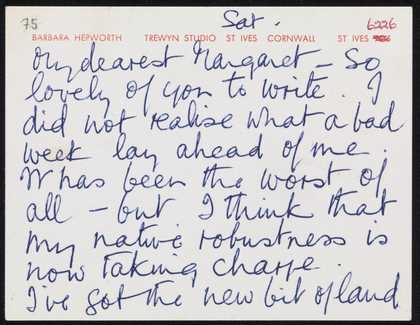 75
Sat.
BARBARA HEPWORTH TREWYN STUDIO ST IVES CORNWALL ST IVES 6226
My dearest Margaret – So
lovely of you to write. I
did not realise what a bad
week lay ahead of me.
It has been the worst of
all – but I think that
my native robustness is
now taking charge.
I've got the new bit of land